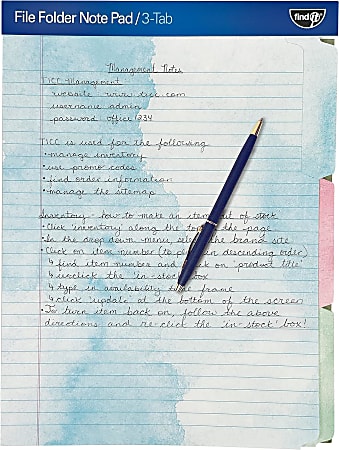 File Folder Note Pad / 3-Tab
find It!
Management Notes
TICC Management
website www.ticc.com
username admin
password office1234
TICC is used for the following
• manage inventory
• use promo codes
• find order information
• manage the sitemap
Inventory - how to make an item out of stock
• Click 'inventory' along the top of the page
• In the drop down menu select the brand site
• Click on item number (to put in descending order)
↳ find item number and click on 'product title'
↳ unclick the 'in-stock' box
↳ type in availability time frame
↳ click 'update' at the bottom of the screen
• To turn item back on, follow the above
directions and re-click the 'in-stock' box!